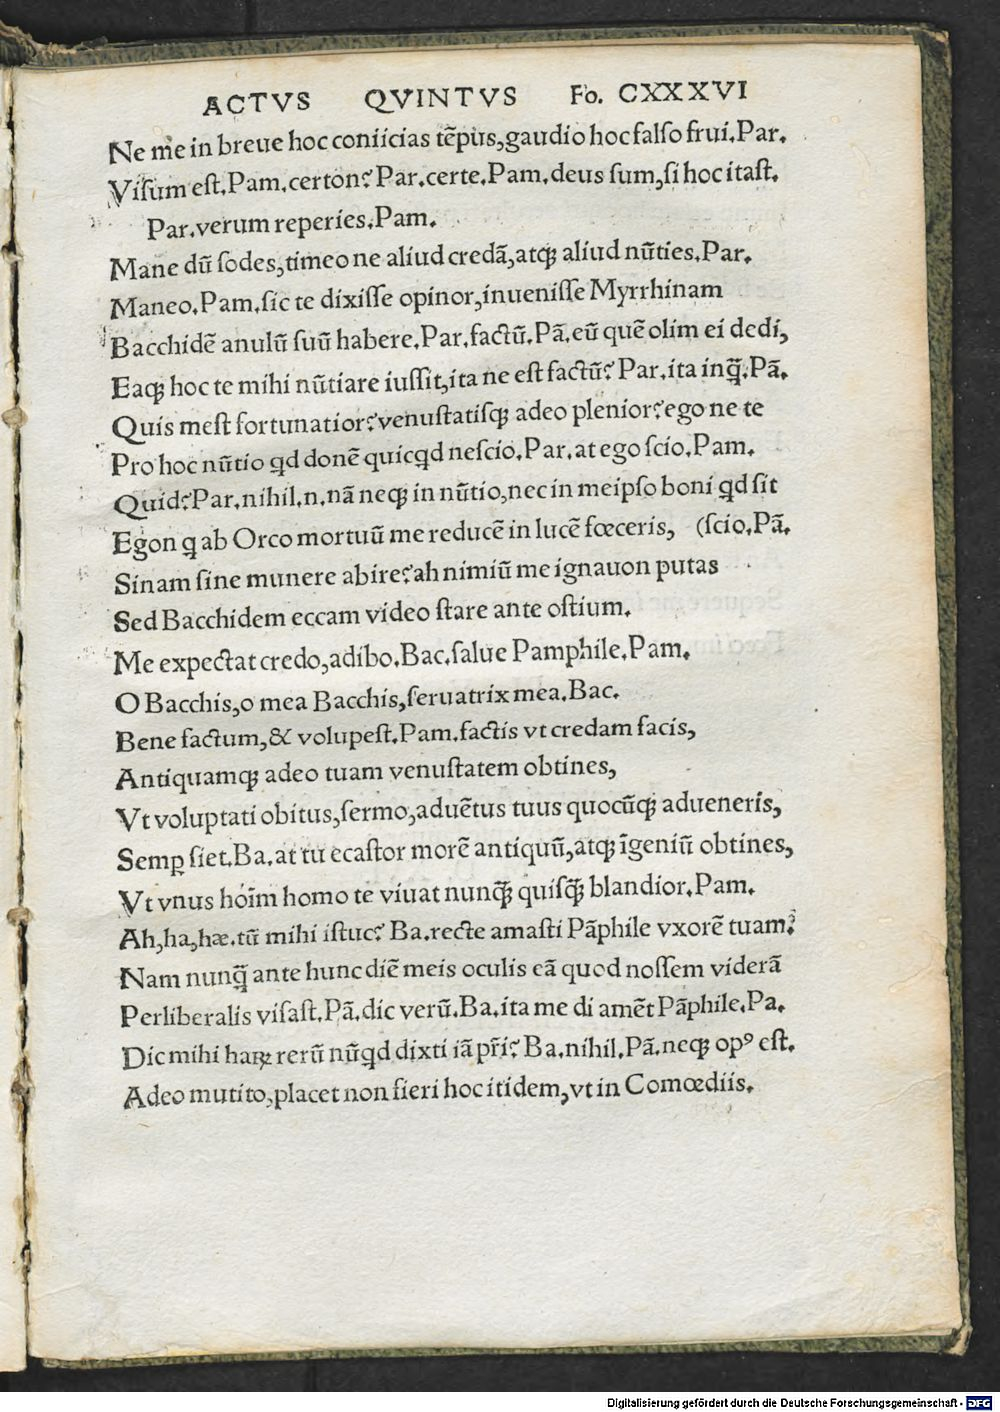 ACTVS QVINTVS Fo. CXXXVI
Ne me in breue hoc coniicias tẽpus, gaudio hoc falſo frui. Par.
Viſum eſt. Pam. certon? Par. certe. Pam. deus ſum, ſi hoc itaſt.
Par. verum reperies. Pam.
Mane dũ ſodes, timeo ne aliud credã, atqꝫ aliud nũties. Par.
Maneo. Pam. ſic te dixiſſe opinor, inueniſſe Myrrhinam
Bacchidẽ anulũ ſuũ habere. Par. factũ. Pã. eũ quẽ olim ei dedi,
Eaqꝫ hoc te mihi nũtiare iuſſit, ita ne eſt factũ? Par. ita inq̃. Pã.
Quis meſt fortunatior? venuſtatiſqꝫ adeo plenior? ego ne te
Pro hoc nũtio qd donẽ quicqd neſcio. Par. at ego ſcio. Pam.
Quid? Par. nihil. n. nã neqꝫ in nũtio, nec in meipſo boni qd ſit
Egon q ab Orco mortuũ me reducẽ in lucẽ fœceris, (ſcio. Pã.
Sinam ſine munere abire? ah nimiũ me ignauon putas
Sed Bacchidem eccam video ſtare ante oſtium.
Me expectat credo, adibo. Bac. ſalue Pamphile. Pam.
O Bacchis, o mea Bacchis, ſeruatrix mea. Bac.
Bene factum, & volupeſt. Pam. factis vt credam facis,
Antiquamqꝫ adeo tuam venuſtatem obtines,
Vt voluptati obitus, ſermo, aduẽtus tuus quocũqꝫ adueneris,
Semꝑ ſiet. Ba. at tu ecaſtor morẽ antiquũ, atqꝫ ĩgeniũ obtines,
Vt vnus hoĩm homo te viuat nunq̃ꝫ quiſq̃ꝫ blandior. Pam.
Ah, ha, hæ. tũ mihi iſtuc? Ba. recte amaſti Pãphile vxorẽ tuam?
Nam nunq̃ ante hunc diẽ meis oculis eã quod noſſem viderã
Perliberalis viſaſt. Pã. dic verũ. Ba. ita me di amẽt Pãphile. Pa.
Dic mihi haꝝ rerũ nũqd dixti iã pr̃i? Ba. nihil. Pã. neqꝫ opꝰ eſt.
Adeo mutito, placet non fieri hoc itidem, vt in Comœdiis.
Digitalisierung gefördert durch die Deutsche Forschungsgemeinschaft - DFG